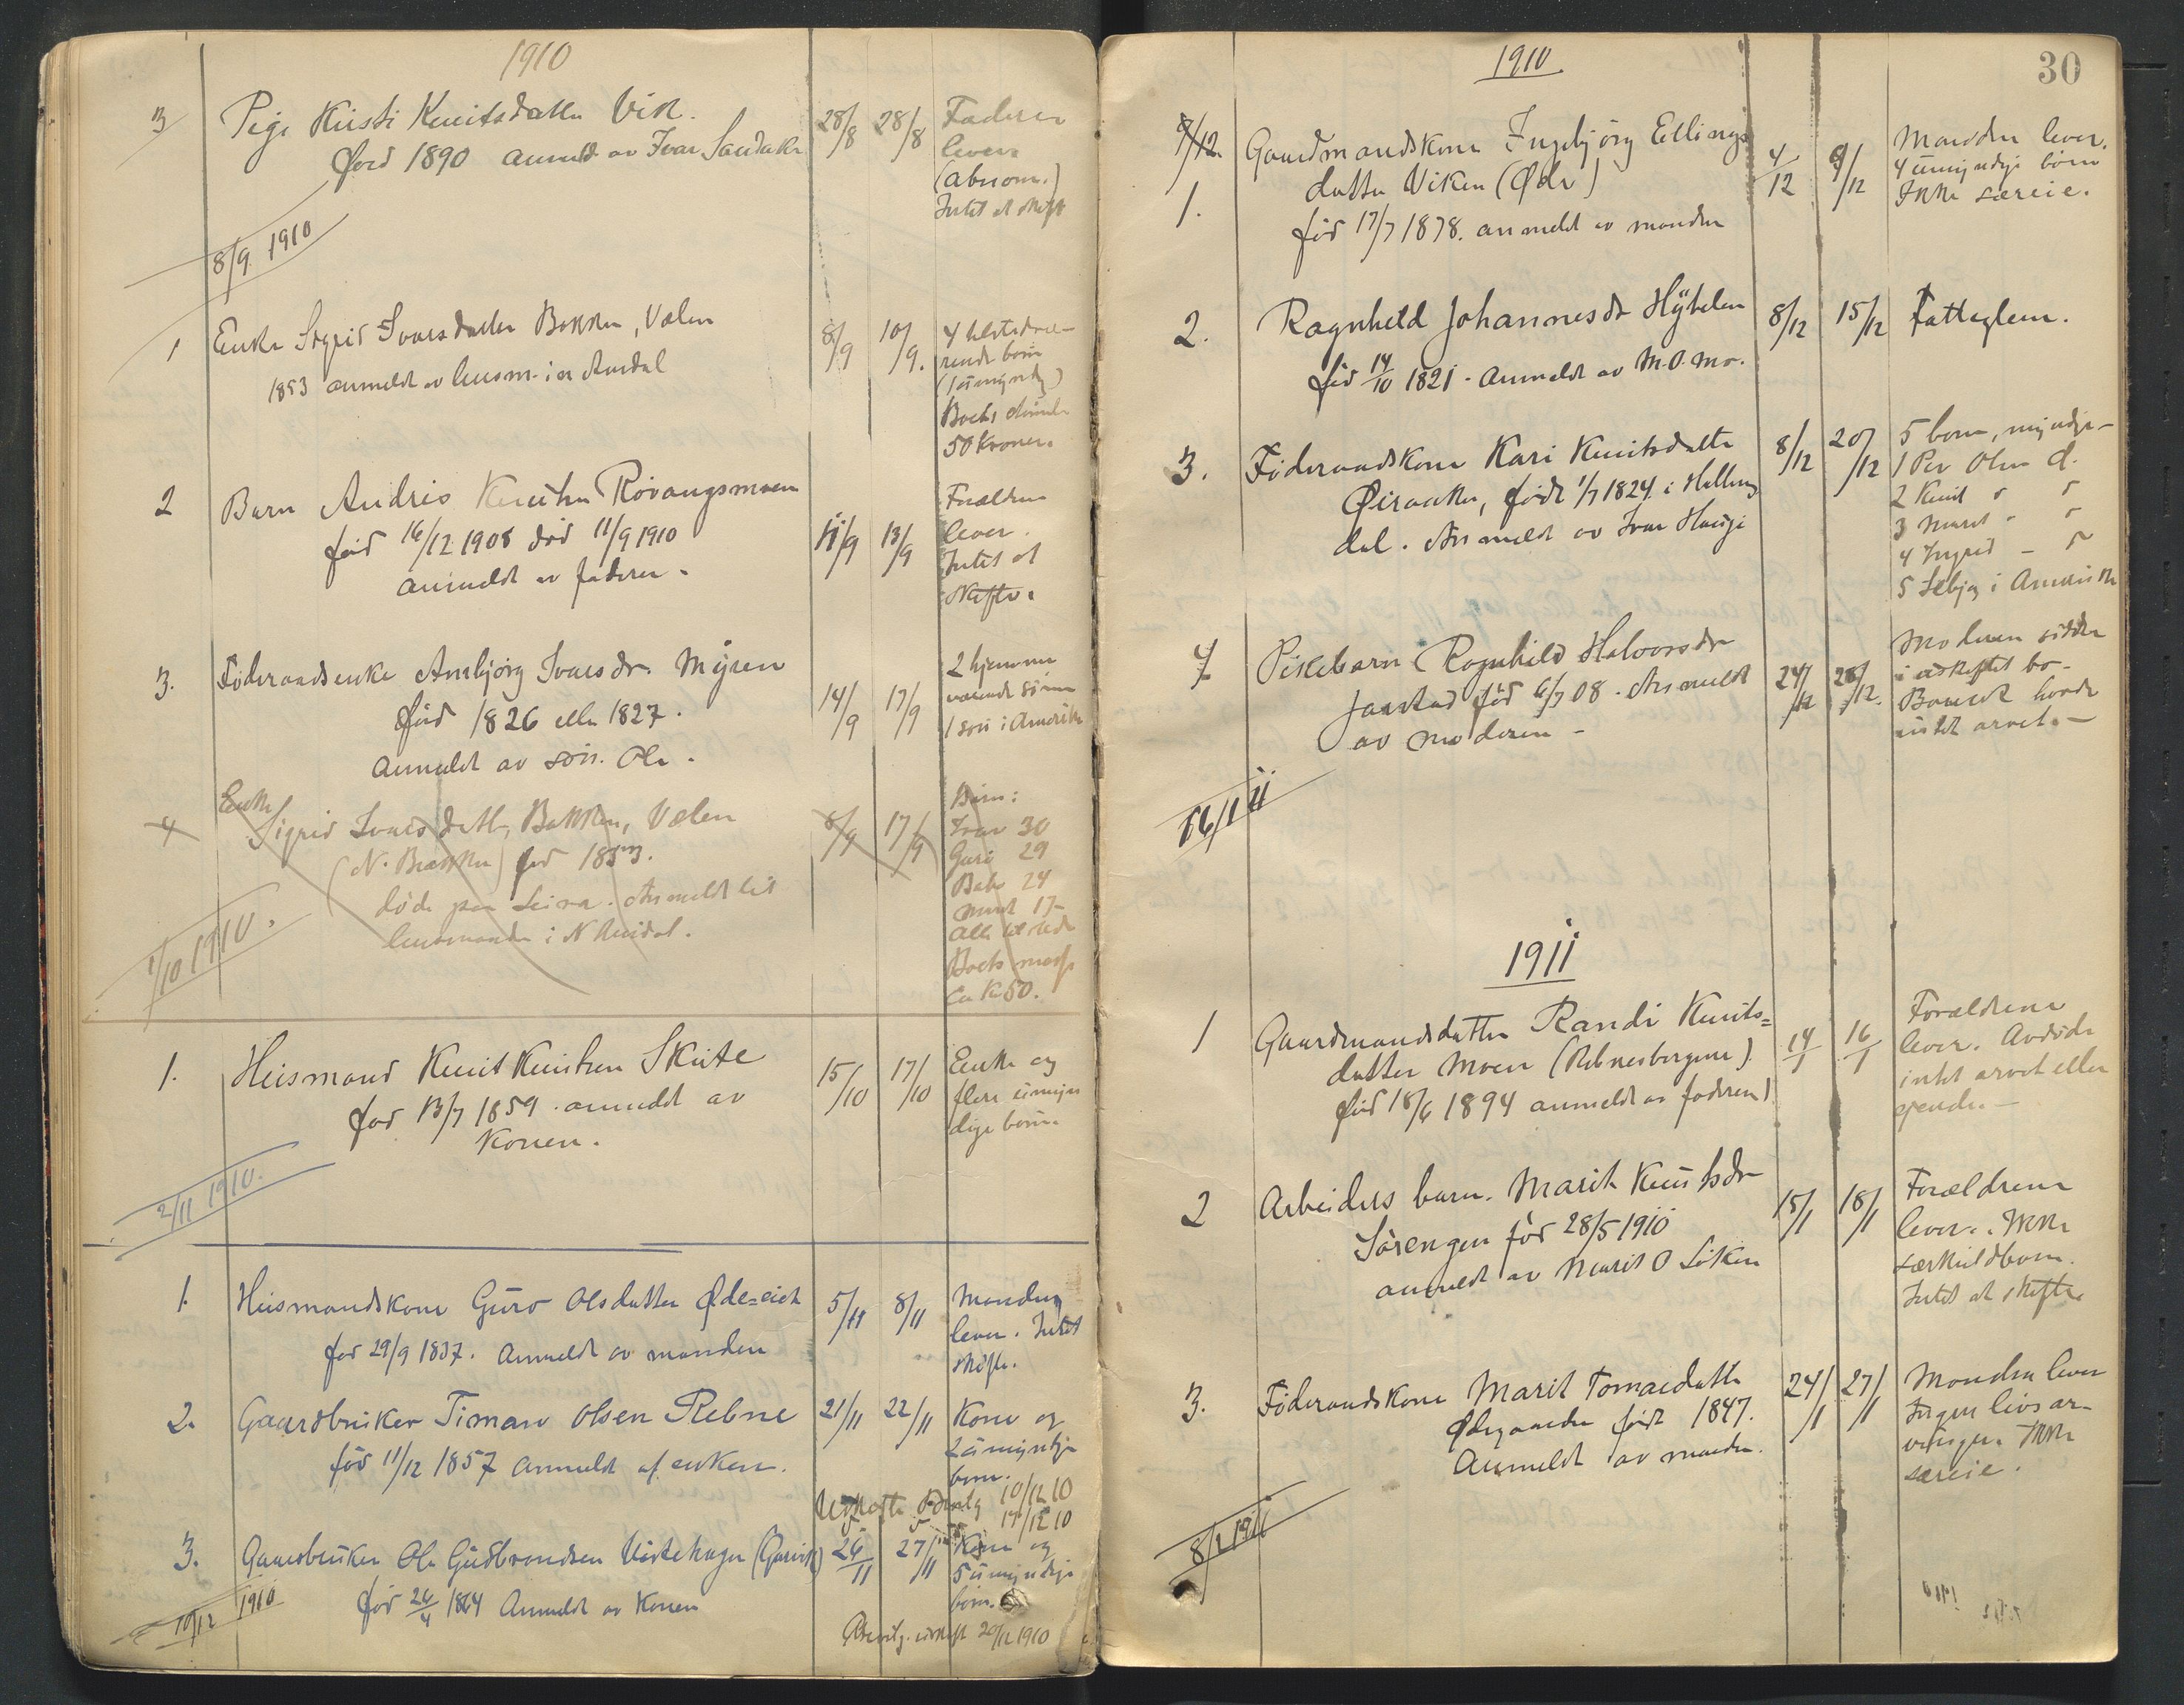 1910
3 Pige Kirsti Knutsdatter Vik. 28/8 28/8 Faderen
født 1890 anmeldt av Ivar Sandaker lever
(abnorm.)
Intet at skifte
8/9 1910
1 Enke Sigrid Ivarsdatter Bakken, Vælen 8/9 10/9. 4 tilstedvæ-
1853 anmeldt av lensm. i N Aurdal rende børn
(1 umyndig)
Boets
50 kroner.
2 Barn Andris Knutsen Røvangsmoen Forældrene
fød 16/12 1908 død 11/9 1910 11/9 13/9 lever.
anmeldt av faderen. Intet at
skifte.
3. Føderaadsenke Ambjørg Ivarsdr. Myren 14/9 17/9 2 hjemme
fød 1826 eller 1827. værende sønner
Anmeldt av søn. Ole. 1 søn i Amerika
4 Enke Sigrid Ivarsdatter, Bakken, Vælen 8/9 17/9 Børn:
(N. Brækken) fød 1853. Ivar 30
døde paa Leira. Anmeldt til Guri 29
lensmanden i N Aurdal. 24
Marit 17-
Alle tilstede
Boets masse
Ca K 50.
1/10 1910.
1. Husmand Knut Knutsen Skute 15/10 17/10 Enke og
fød 13/7 1859. anmeldt av flere umyn
Konen. dige børn.
2/11 1910.
1. Husmandskone Guro Olsdatter Øde=eiet 5/11 8/11 Manden
fød 29/9 1837. Anmeldt av manden lever. Intet
skifte.
2. Gaardbruker Timan Olsen Rebne 21/11 22/11 Kone og
fød 11/12 1857 Anmeldt af enken. 2 umyndige
børn.
10/12 10
17/12 10
3. Gaardbruker Ole Gudbrandsen Vårtehagen 26/11 27/11 Kone og
fød 26/4 1864 Anmeldt av Konen 5 umyndige
børn.
10/12 1910 uskift 20/12 1910
30
1910
7/12.
1. Gaardmandskone Ingebjørg Ellings 4/12 9/12 Manden lever.
datter Viken (Øde) 4 umyndige børn
fød 17/7 1878. anmeldt av manden Ikke særeie.
2. Ragnhild Johannesdr Hythelen 8/12 15/12 Fattiglem.
fød 14/10 1821. Anmeldt av M.O. Mo.
3. Føderaadskone Kari Knutsdatter 8/12 20/12 5 børn, myndige-
Øiraaker, født 1/7 1824 i Halling 1 Per Olsen d.
dal. Anmeldt av Ivar Hauge 2 Knut
3 Marit
4 Ingrid
5 Sebjøg i Amerika
4 Pikebarn Ragnhild Halvorsdr 24/12 28/12. Moderen sidder
Jarstad fød 6/7 08. Anmeldt i uskiftet bo-
av moderen - Barnet havde
intet arvet. -
16/1 11
1911
1 Gaardmandsdatter Randi Knuts= 14/1 16/1 Forældrene
datter Moen (Rebnesbergene) lever. Avdøde
fød 18/6 1894 anmeldt av faderen intet arvet eller
eiende. -
2 Arbeiders barn. Marit Knutsdr 15/1 18/1 Forældrene
Sørengen fød 28/5 1910 lever. Ikke
anmeldt av Marit O Løken særkuldbarn.
Intet at skifte.
3. Føderaadskone Marit Tomasdatter 24/1 27/1 Manden lever
Ødegaarden født 1847. Ingen livsar-
Anmeldt av manden. vinger. Ikke
særeie.
8/2 1911